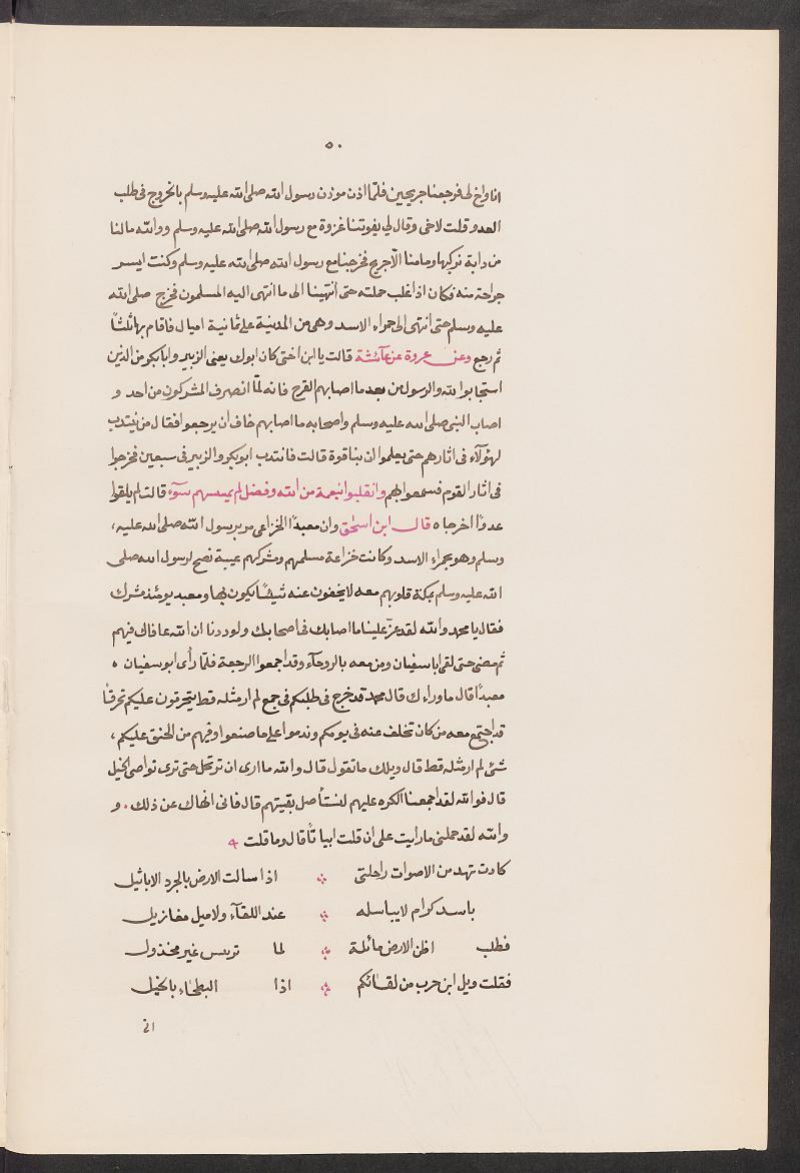 ٥٠
انا واخ لى فرجعنا جريحين فلمّا اذن موذن رسول الله صلى الله عليه وسلم بالخروج فى طلب
العدو قلت لاخى وقال لي يفوتنا غزوة مع رسول الله صلى الله عليه وسلم ووالله مالنا
من دابة نركبها ومامنا الّا جريح فخرجنا مع رسول الله صلى الله عليه وسلم وكنت ايسر
جراحة منه فكان اذا غلب حملته حتى انتهينا الى ما انتهى اليه المسلمون فخرج صلى الله
عليه وسلم حتى انتهى الى حمراء الاسد وهى من المدينة على ثمانية اميال فاقام بها ثلثاً
ثم رجع وعن عروة عن عآئشة قالت يا ابن اختى كان ابوك يعنى الزبير وابابكر من الذين
استجابوا لله والرسول من بعد ما اصابهم القرح فانه لمّا انصرف المشركون من احد و
اصاب النبى صلى الله عليه وسلم واصحابه ما اصابهم خاف ان يرجعوا فقال من ينتدب
لهئولآء فى اثارهم حتى يعلموا ان بنا قوة قالت فانتدب ابوبكر والزبير فى سبعين فخرجوا
فى اثار القوم فسمعوا بهم وانقلبوا بنعمة من الله وفضل لم يمسسهم سوٓء قالت لم يلقوا
عدوًا اخرجاه قال ابن اسحٰق وان معبدًا الخزاعى مر برسول الله صلى الله عليه،
وسلم وهو بحمراء الاسد وكانت خزاعة مسلمهم ومشركهم عيبة نصح لرسول الله صلى
الله عليه وسلم بمكة قلوبهم معه لايخفون عنه شيئًا يكون بها ومعبد يومئذ مشرك
فقال يا محمد والله لقد عزّ علينا ما اصابك فى اصحابك ولوددنا ان الله عافاك فيهم
ثم مضى حتى لقى ابا سفيان ومن معه بالروحآء وقد اجمعوا الرجعة فلمّا رأى ابو سفيان ه
معبدًا قال ماوراءك قال محمد قد خرج فى طلبكم فى جمع لم ار مثله قط يتحرقون عليكم تحرقاً
قد اجتمع معه من كان تخلف عنه فى يومكم وندموا على ما صنعوا وفيهم من الحنق عليكم،
شئ لم ار مثله قط قال ويلك ماتقول قال والله ما ارى ان ترتحل حتى ترى نواصى الخيل
قال فوالله لقد اجمعنا الكره عليهم لنستأصل بقيتهم قال فانى انهاك عن ذلك . و
والله لقد حملنى مارايت على ان قلت ابياتًا قال وما قلت
كادت تهد من الاصوات راحلتى اذا سالت الارض بالجرد الابائيل
باسد كرام لايباسله عند اللقآء ولاميل مغازيل
فطلب اظن الارض مائلة لما تريس غير مخذول
فقلت ويل ابن حرب من لقائكم اذا البطحاء بالخيل
انى